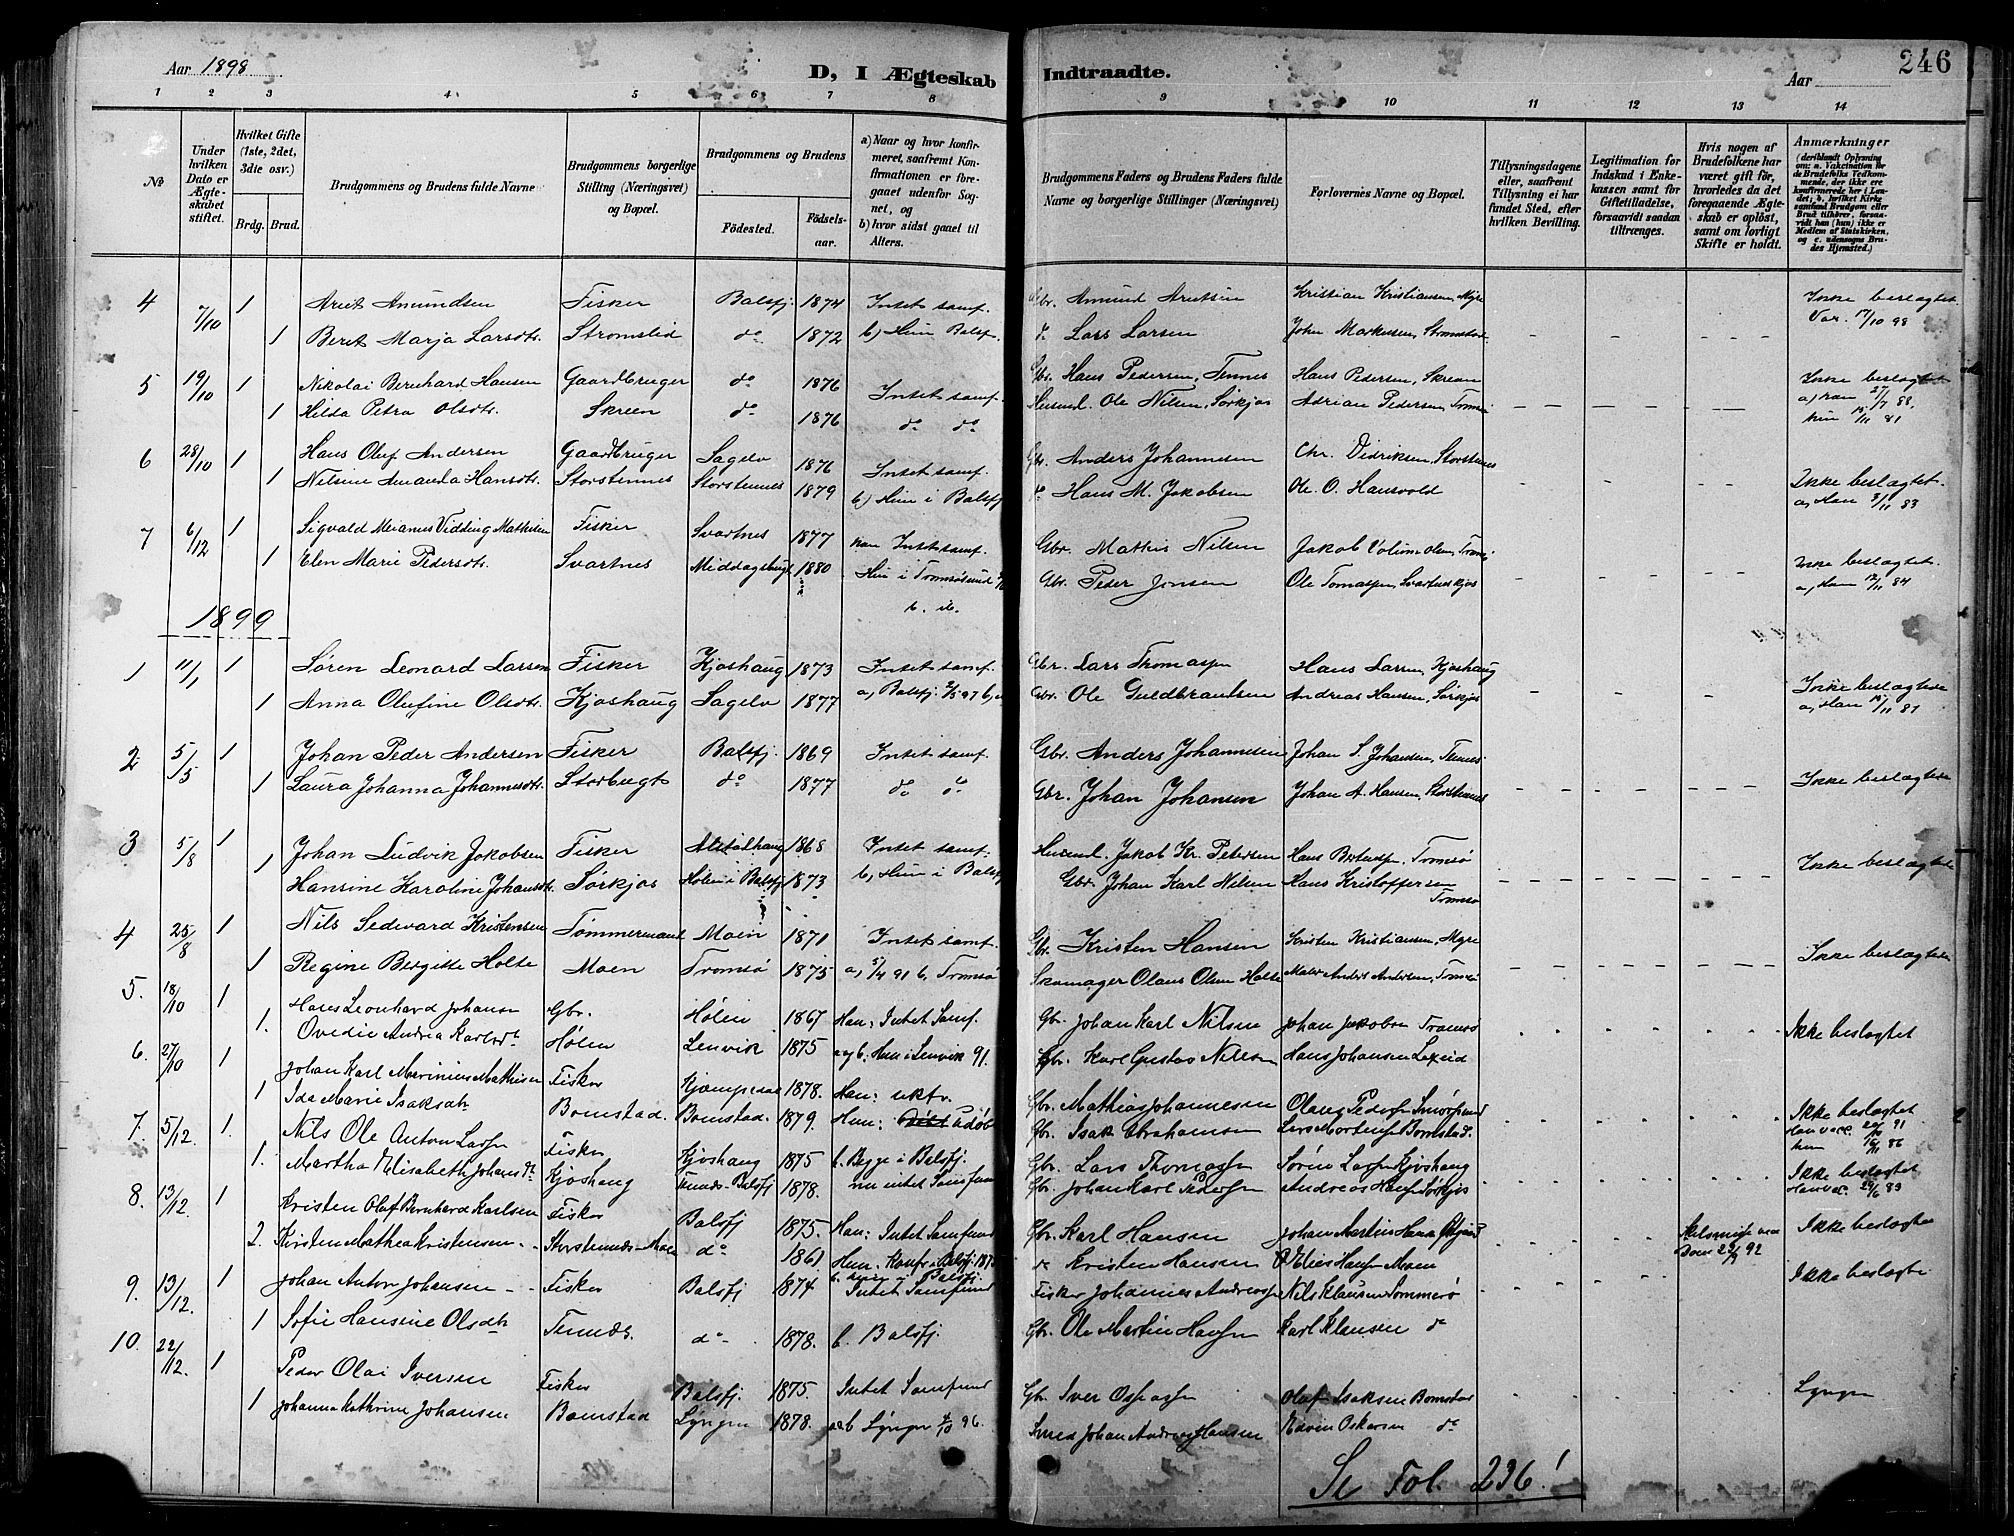 Aar 1898
D, I Ægteskab Indtraadte.
Aar
246
1 2 3 4 5 6 7 8 9 10 11 12 13 14
№
Under hvilken Dato er Ægteskabet stiftet.
Hvilket Gifte (1ste, 2det, 3die osv.)
Brdg. Brud.
Brudgommens og Brudens fulde Navne
Brudgommens borgerlige Stilling (Næringsvei) og Bopæl.
Brudgommens og Brudens
Födested.
Födselsaar.
a) Naar og hvor konfirmeret, saafremt Konfirmationen er foregaaet udenför Sognet, og
b) hvor sidst gaaet til Alters.
Brudgommens Faders og Brudens Faders fulde Navne og borgerlige Stillinger (Næringsvei)
Forlovernes Navne og Bopæl.
Tillysningsdagene eller, saafremt Tillysning ei har fundet Sted, efter hvilken Bevilling.
Legitimation for Indskud i Enkekassen samt for Giftetilladelse, forsaavidt saadan tiltrænges.
Hvis nogen af Brudefolkene har været gift för, hvorledes da det foregaaende Ægteskab er oplöst, samt om lovligt Skifte er holdt.
Anmærkninger
(deriblandt Oplysning om: a. Vakcination for de Brudefolks Vedkommende, der ikke ere konfirmerede her i Landet, b. hvilket Kirkesamfund Brudgom eller Brud tilhörer, forsaavidt han (hun) ikke er Medlem af Statskirken, og c. udensogns Brudes Hjemsted.)
4 7/10 1 Arnt Amundsen Fisker Balsfj. 1874 Intet samf. Gbr. Amund Arntsen Kristian Kristiansen, Myre Ikke beslagtet
1 Berit Marja Larsdtr. Stromslid do 1872 b, Hun Balsf. do Lars Larsen John Markussen, Var. 17/10 98
5 19/10 1 Nikolai Bernhard Hansen Gaardbruger do 1876 Intet samf. Gbr. Hans Pedersen, Tennes Hans Pedersen, Skreen Ikke beslagtet
1 Hilda Petra Olsdtr. Skreen do 1876 do do Husmd. Ole Nilsen, Sørkjos Adrian Pedersen, Tromsø
6 28/10 1 Hans Oluf Andersen Gaardbruger Sagelv 1876 Intet samf. Gbr. Anders Johannesen Chr. Didriksen, Storstennes Ikke beslagtet.
1 Nilsine Amanda Hansdtr. Storstennes Storstennes 1879 b, Hun i Balsfj do Hans M. Jakobsen Ole O. Hansvold a, Han 3/11 83
7 6/12 1 Sigvald Meramus Vidding Mathisen Fisker Svartnes 1877 han Intet samf. Gbr. Mathis Nilsen Jakob Olsen, Ikke beslagtet.
1 Elen Marie Pedersdtr. Svartnes Middagsbugt 1880 Hun i Tromsøsund Gbr. Peder Jonsen Ole Tomassen, a, Han 12/11 84
1899
1 11/1 1 Søren Leonard Larsen Fisker Kjoshaug 1873 Intet samf. Gbr. Lars Thomassen Hans Larsen, Kjoshaug Ikke beslagtede
1 Anna Olufine Olsdtr. Kjoshaug Sagelv 1877 a, Balsfj. Gbr. Ole Guldbrandsen Andreas Hansen, Sørkjos
2 5/5 1 Johan Peder Andersen Fisker Balsfj. 1869 Intet samf. Gbr. Anders Johannesen Johan S. Johansen, Tennes
1 Laura Johanna Johannesdtr. Storbugt do 1877 do do Gbr. Johan Johansen Johan A. Hansen, Storstennes Ikke beslagtede
3 5/8 1 Johan Ludvik Jakobsen Fisker Alstahaug 1868 Intet samf. Husmd. Jakob Kr. Petersen Hans Berntsen, Tromsø Ikke beslagtede
1 Hansine Karoline Johansdtr. Sørkjos Holen i Balsfj 1873 b, Hun i Balsfj Gbr. Johan Karl Nilsen Hans Kristoffersen Tromsø
4 25/8 1 Nils Sedevard Kristensen Tømmermand Moen 1871 Intet samf. Gbr. Kristen Hansen Kristen Kristiansen, Myre Ikke beslagtede
1 Regine Bergitte Holte Moen Tromsø 1875 a, 5/4 91 b, Tromsø Skomager Olaus Olsen Holte Maler Anders Andersen, Tromsø
5. 18/10 1 Hans Leonhard Johansn Gbr. Hølen 1867 Han: Intet Samf. Gb. Johan Karl Nilsen Johan Jakobsn Tromsø Ikke beslagtet
1. Ovedie Andrea Karlsdtr Hølen Lenvik 1875 a og b: Hun i Lenvik 91. Gbr. Karl Gustav Nilsen Hans Johansen
6. 27/10 1 Johan Karl Marinius Mathisen Fisker 1878. Han: Gbr. Mathias Johannesen Ikke beslagtet
1 Ida Marie Isaksdtr Bomstad. Bomstad. 1879. Hun: udøbt Gbr. Isak Abrahamsen Lars Mortensen Bomstad.
7. 5/12. 1. Nils Ole Anton Larsen Fisker Kjoshaug 1875 b. Begge i Balsfj. Gbr. Lars Thomassen Søren Larsen Kjoshaug Ikke beslagtet
1. Martha Elisabeth Johansdtr Kjoshaug Balsfj 1878. nu intet Samfund Gbr. Johan Karl Pedersen Andreas Hansen Sørkjos
8. 13/12. 1 Kristen Olaf Bernhard Karlsen Fisker Balsfj 1875. Han: Intet Samfund Gbr. Karl Hansen Johan Martin Hansen Ikke beslagtet
2. Kirsten Mathea Kristensen do 1861 Hun: Konf. i Balsfj. do Kristen Hansen Elias Hansen Moen
9. 13/12. 1 Johan Anton Johansen Fisker Balsfj 1874 Intet Samfund Fisker Johannes Andreassen Nils Klausen Sommerø Ikke beslagtet
1 Sofie Hansine Olsdtr do 1878. b. Balsfj. Gbr. Ole Martin Hansen Karl Klausen do
10. 22/12. 1 Peder Olai Iversen Fisker Balsfj. 1875. Intet Samfund Gbr. Iver Olaf Isaksen Bomstad Lyngen
1 Johanna Kathrine Johansen Bomstad Lyngen 1878. a & b Lyngen 96. Smed Johan Andreas Hansen Edvin Oskarsen do
Se Fol. 236!